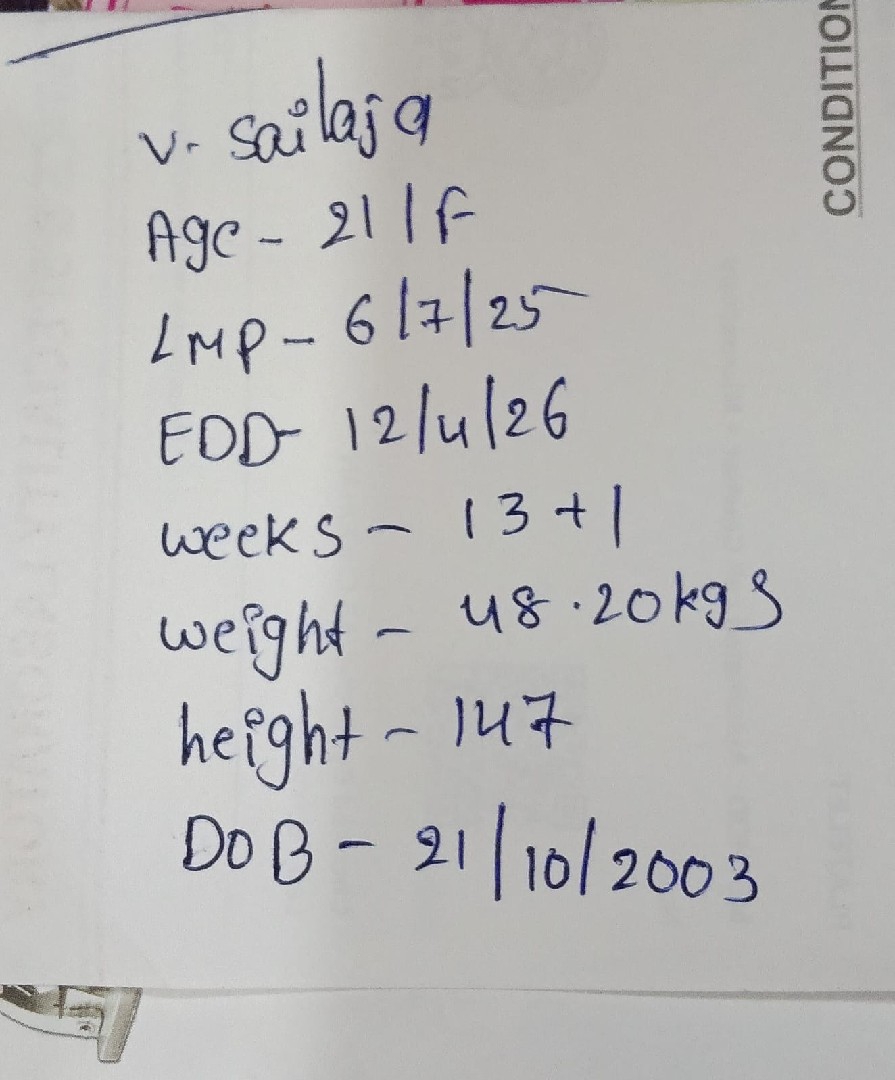 V. Sailaja
Age - 21 / F
LMP - 6/7/25
EDD - 12/4/26
weeks - 13 + 1
weight - 48.20 kgs
height - 147
DOB - 21/10/2003
CONDITION